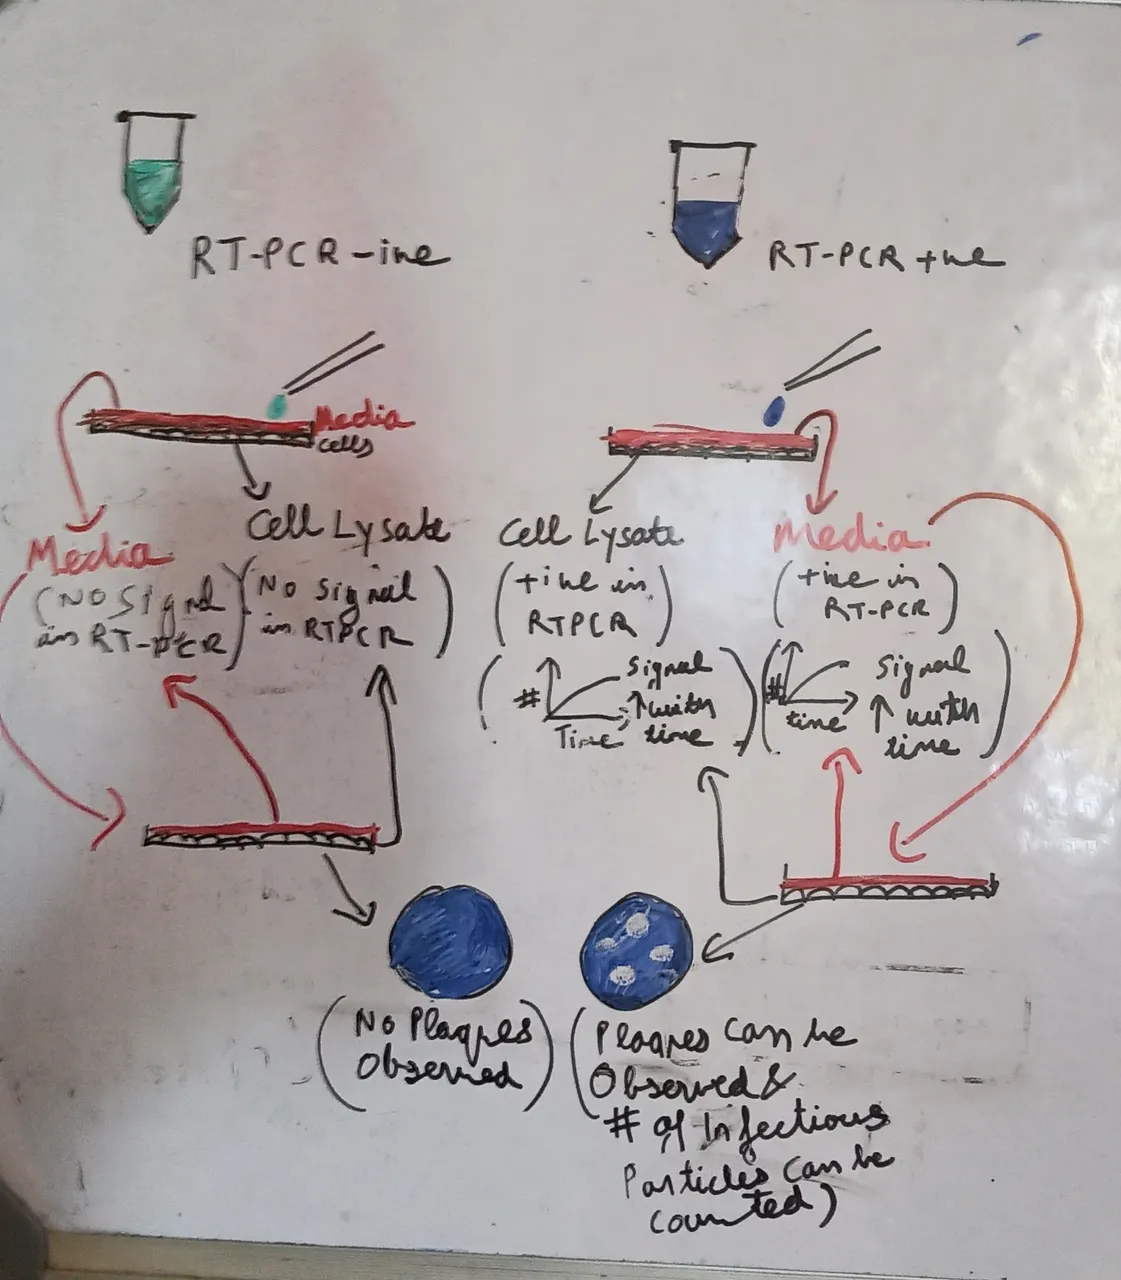 RT-PCR -ive
RT-PCR +ve
Media
Cells
Cell Lysate
Media
(No Signal
in RT-PCR)
(No Signal
in RTPCR)
Cell Lysate
(+ive in
RTPCR)
Media
(+ive in
RT-PCR)
(# Signal
↑ with
Time time)
(# Signal
time ↑ with
time)
(No Plaques
Observed)
(Plaques can be
Observed &
# of Infectious
Particles can be
counted)